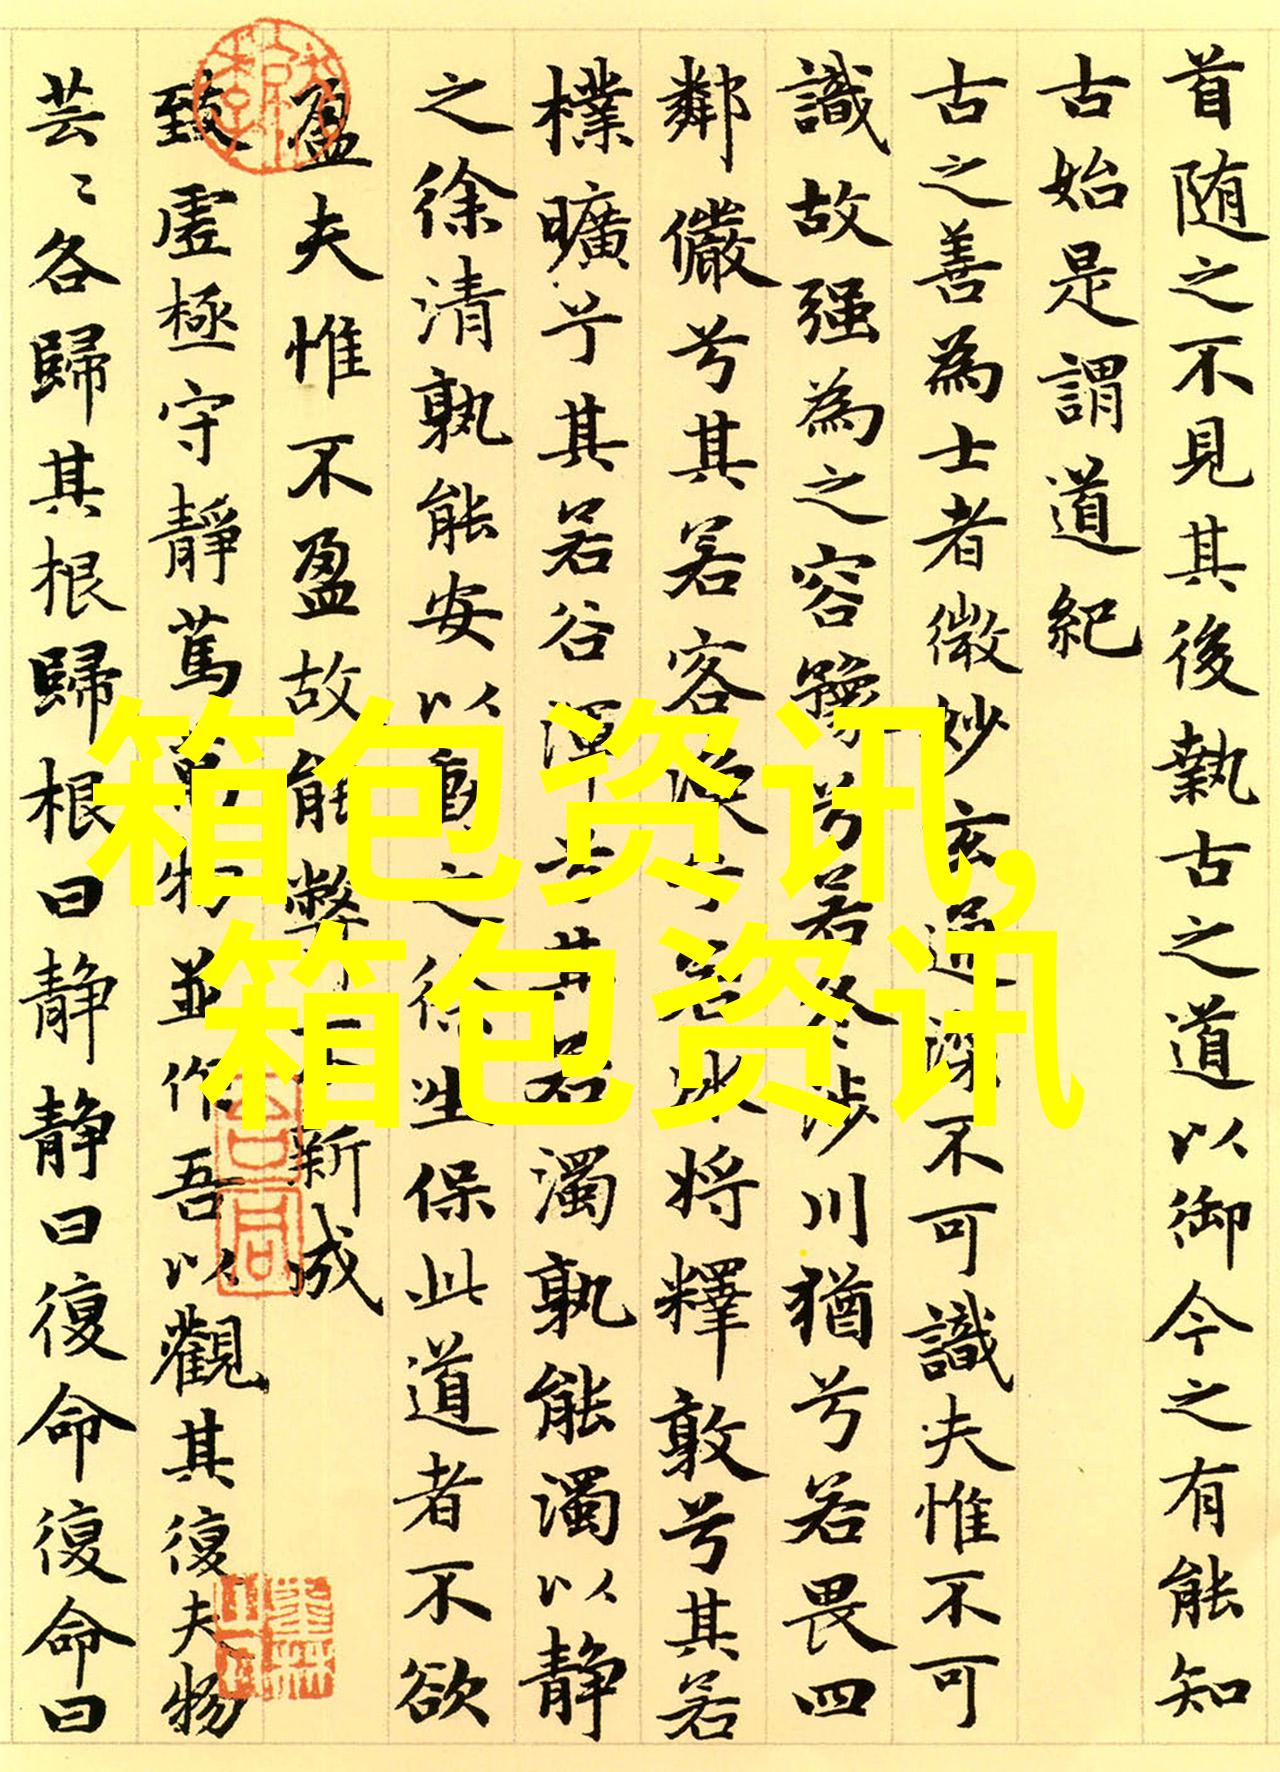 首随之不見其後執古之道以御今之有能知
古始是謂道紀
古之善為士者微妙玄通深不可識夫惟不可
識故强為之容豫兮若冬涉川猶兮若畏四
鄰儼兮其若客渙兮若冰將釋敦兮其若
樸曠兮其若谷渾兮其若濁孰能濁以静
之徐清孰能安以動之徐生保此道者不欲
盈夫惟不盈故能弊不新成
致虛極守靜篤萬物並作吾以觀其復夫物
芸〻各歸其根歸根曰静静曰復命復命曰
箱包资讯,
箱包资讯